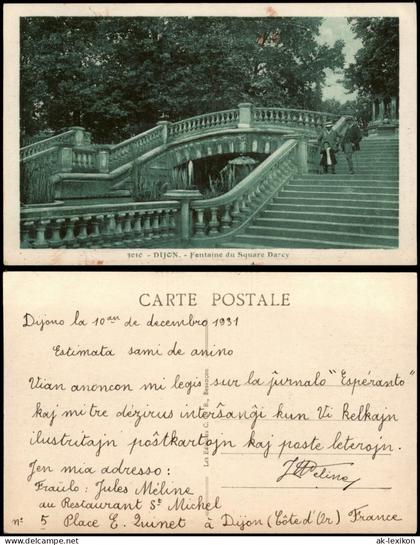 3010 - DIJON. - Fontaine du Square Darcy
CARTE POSTALE
Dijono la 10an de decembro 1931
Estimata sami de anino
Vian anoncon mi legis sur la ĵurnalo "Espéranto"
kaj mi tre dézirus interŝanĝi kun Vi kelkajn
ilustritajn poŝtkartojn kaj poste leterojn.
Jen mia adresso:
Fraŭlo: Jules Méline
au Restaurant St Michel
n° 5 Place E. Quinet à Dijon (Côte d'Or) France
JMéline
© ak-lexikon